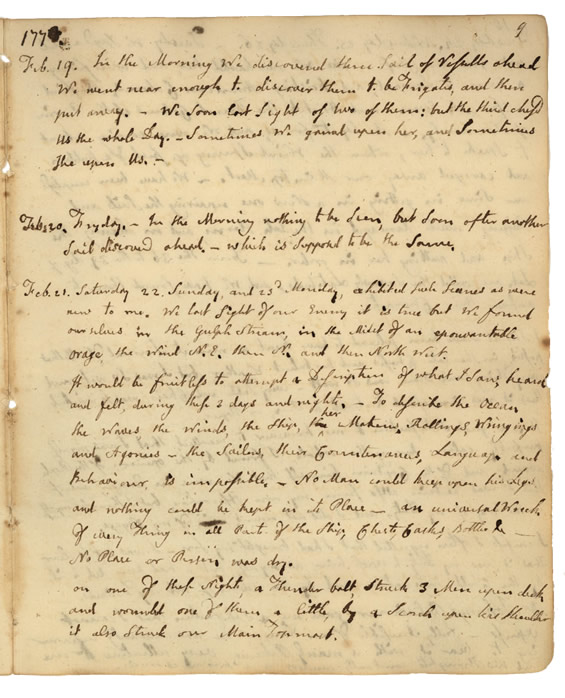 1778.
9
Feb. 19. In the Morning We discovered three Sail of Vessells ahead
We went near enough to discover them to be Frigates, and then
put away. - We soon lost sight of two of them: but the third chased
Us the whole Day. - Sometimes We gained upon her, and Sometimes
She upon Us. -
Feb. 20. Fryday. - In the Morning nothing to be Seen, but Soon after another
Sail discovered ahead. - which is supposed to be the Same.
Feb. 21. Saturday 22. Sunday, and 23d Monday, exhibited such Scenes as were
new to me. We lost Sight of our Enemy it is true but We found
ourselves in the Gulph Stream, in the Midst of an epouvantable
orage, the Wind N.E. then N. and then North West.
It would be fruitless to attempt a Description of what I Saw, heard
and felt, during these 3 days and nights. - To describe the Ocean
the Waves the Winds, the Ship, her Motions, Rollings, Wringings
and Agonies - the Sailors, their Countenances, Language and
Behaviour, is impossible. - No Man could keep upon his Legs
and nothing could be kept in its Place - an universal Wreck
of every Thing in all Parts of the Ship, Chests, Casks, Bottles &c -
No Place or Person was dry.
on one of these Nights, a Thunder bolt, Struck 3 Men upon deck
and wounded one of them a little, by a Scorch upon his Shoulder
it also Struck our Main Topmast.